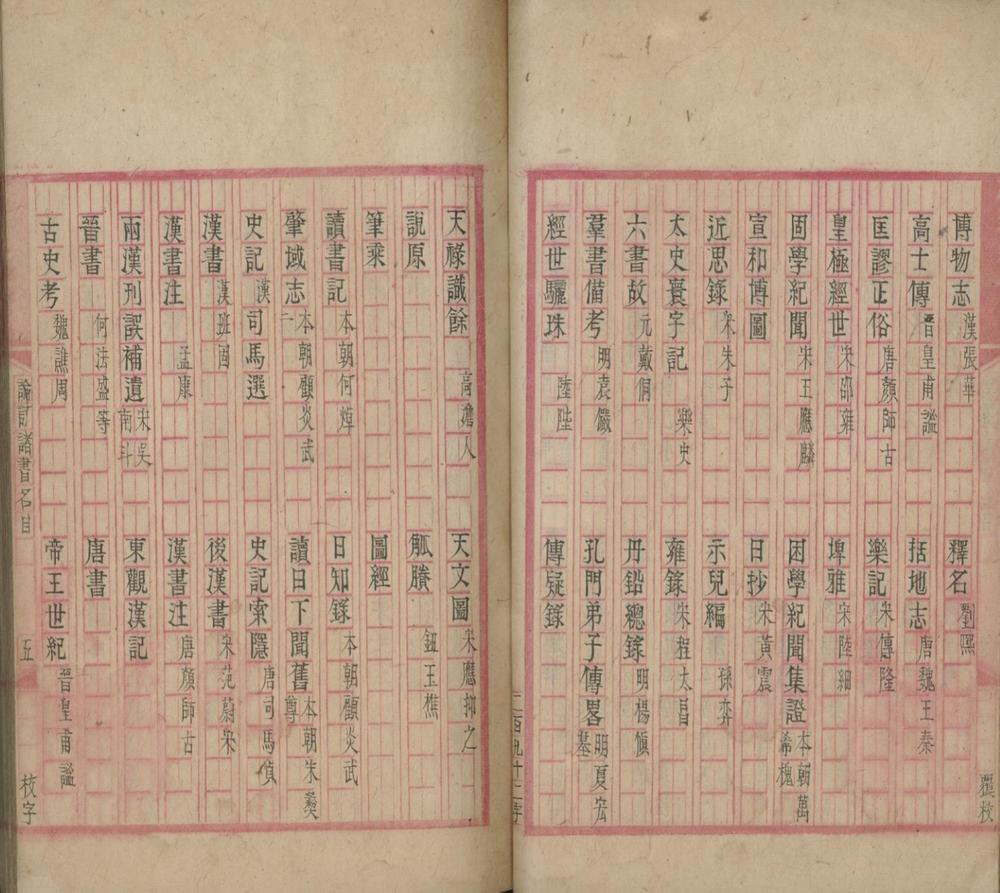 博物志 漢張華 釋名 劉熙
高士傳 晉皇甫謐 括地志 唐魏王泰
匡謬正俗 唐顏師古 樂記 宋傅隆
皇極經世 宋邵雍 埤雅 宋陸細
固學紀聞 宋王應麟 困學紀聞集證 本朝萬希槐
宣和博圖 日抄 宋黃震
近思錄 宋朱子 示兒編 孫奕
太史寰字記 樂史 雍錄 宋程大昌
六書故 元戴侗 丹鉛總錄 明楊慎
羣書備考 明袁儼 孔門弟子傳畧 明夏宏基
經世驪珠 陸陛 傳疑錄
二百九十二字
校
天祿識餘 高澹人 天文圖 宋應抑之
說原 觚賸 鈕玉樵
筆乘 圖經
讀書記 本朝何焯 日知錄 本朝顧炎武
肇域志 本朝顧炎武 讀日下聞舊 本朝朱彝尊
史記 漢司馬選 史記索隱 唐司馬貞
漢書 漢班固 後漢書 宋范蔚宗
漢書注 孟康 漢書注 唐顏師古
兩漢刊誤補遺 宋吳南斗 東觀漢記
晉書 何法盛等 唐書
古史考 魏譙周 帝王世紀 晉皇甫謐
論訂諸書名目 五 校字